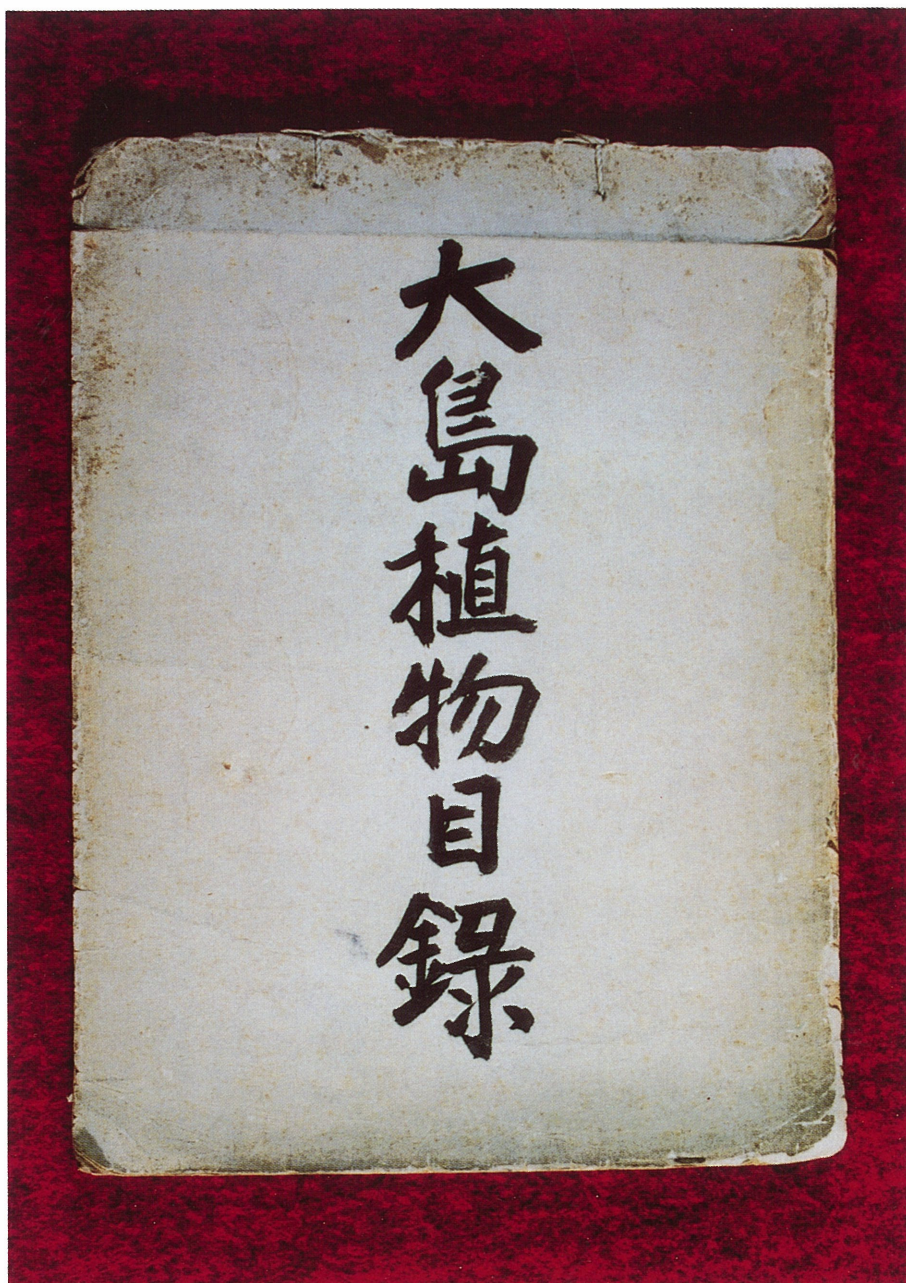 大島植物目錄